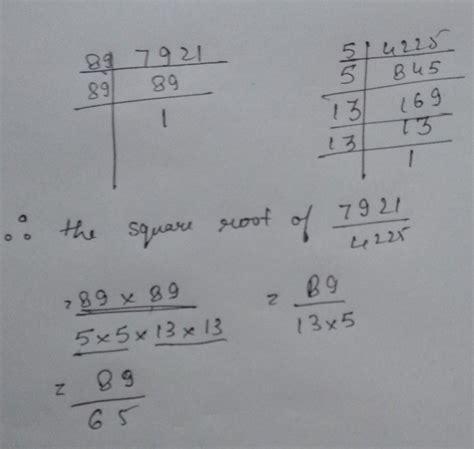 89 | 7921
89 | 89
1
5 | 4225
5 | 845
13 | 169
13 | 13
1
∴ the square root of 7921/4225
= 89 × 89 / 5×5 × 13×13
= 89 / 13×5
= 89 / 65